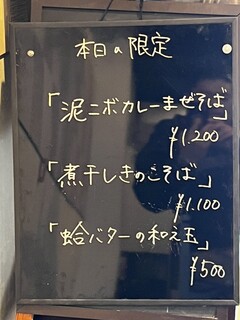 本日の限定
「泥ニボカレーまぜそば」
¥1.200
「煮干しきのこそば」
¥1.100
「蛤バターの和え玉」
¥500